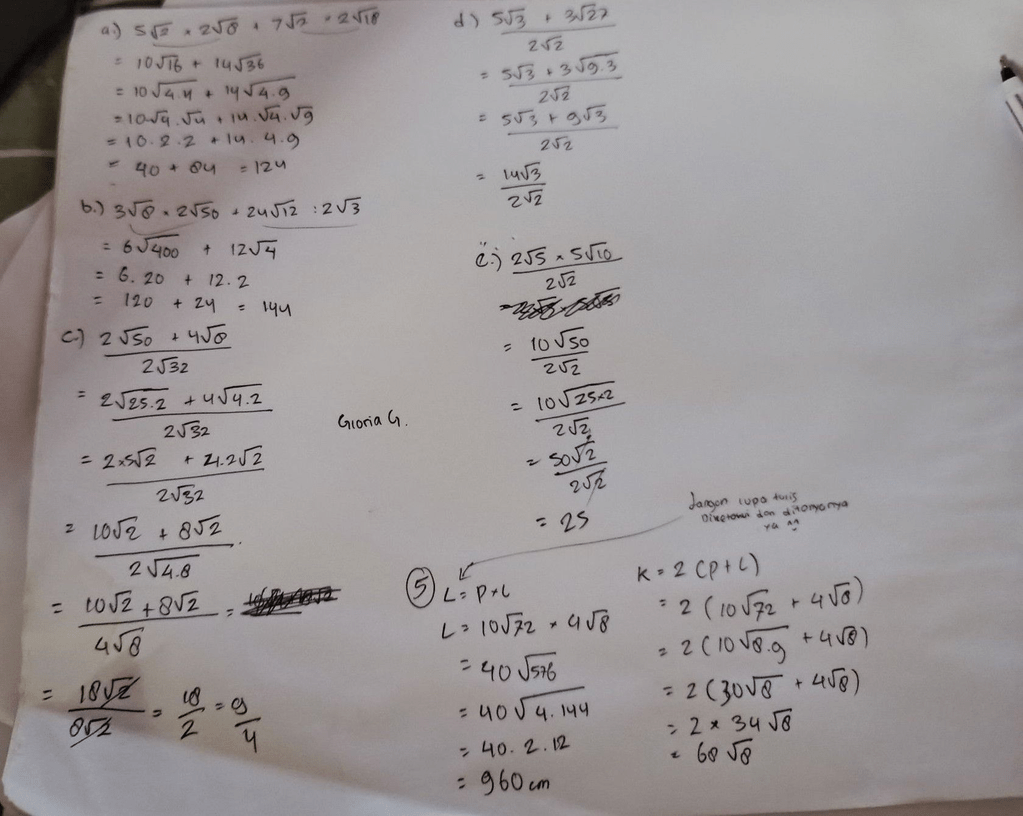 a.) 5√2 × 2√8 + 7√2 × 2√18
= 10√16 + 14√36
= 10√4.4 + 14√4.9
= 10.√4.√4 + 14.√4.√9
= 10.2.2 + 14.4.9
= 40 + 84 = 124
b.) 3√8 × 2√50 + 24√12 : 2√3
= 6√400 + 12√4
= 6.20 + 12.2
= 120 + 24 = 144
c.) 2√50 + 4√8
2√32
= 2√25.2 + 4√4.2
2√32
= 2×5√2 + 4.2√2
2√32
= 10√2 + 8√2
2√4.8
= 10√2 + 8√2 =
4√8
= 18√2 = 18 = 9
8√2 2 4
Gloria G.
d.) 5√3 + 3√27
2√2
= 5√3 + 3√9.3
2√2
= 5√3 + 9√3
2√2
= 14√3
2√2
e.) 2√5 × 5√10
2√2
= 10√50
2√2
= 10√25×2
2√2
= 50√2
2√2
= 25
Jangan lupa tulis
Diketahui dan ditanyanya
ya ^^
5 L = P×L
L = 10√72 × 4√8
= 40√576
= 40√4.144
= 40.2.12
= 960 cm
K = 2 (P+L)
= 2 (10√72 + 4√8)
= 2 (10√8.9 + 4√8)
= 2 (30√8 + 4√8)
= 2 × 34√8
= 68√8